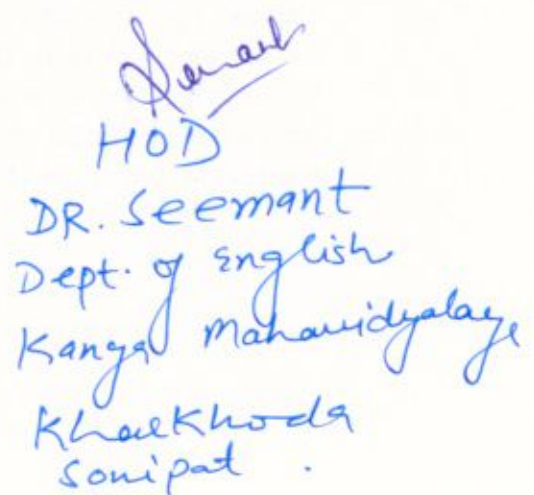 Seemant
HOD
DR. Seemant
Dept. of English
Kanya Mahavidyalaya
Kharkhoda
Sonipat.